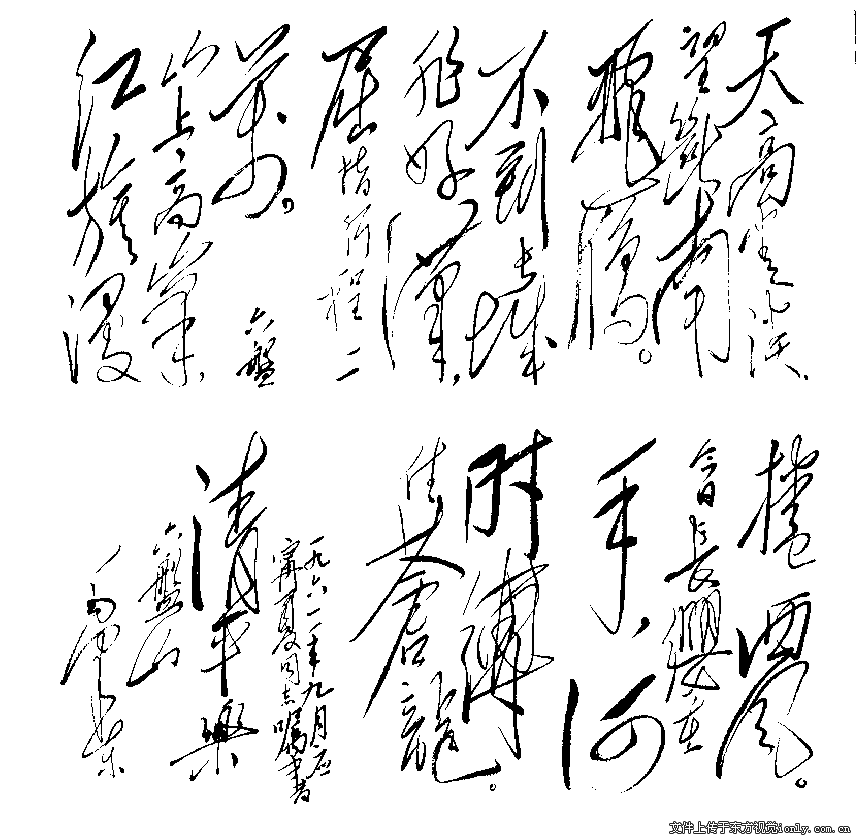 天高雲淡,
望斷南
飛鴈。
不到長城
非好漢,
屈指行程二
萬。六盤
山上高峯,
红旗漫
捲西風。
今日長纓在
手,何
時縛
住蒼龍。
一九六一年九月应
寧夏同志嘱书
清平樂
六盤山
毛澤東
文件上传于东方视觉ionly.com.cn